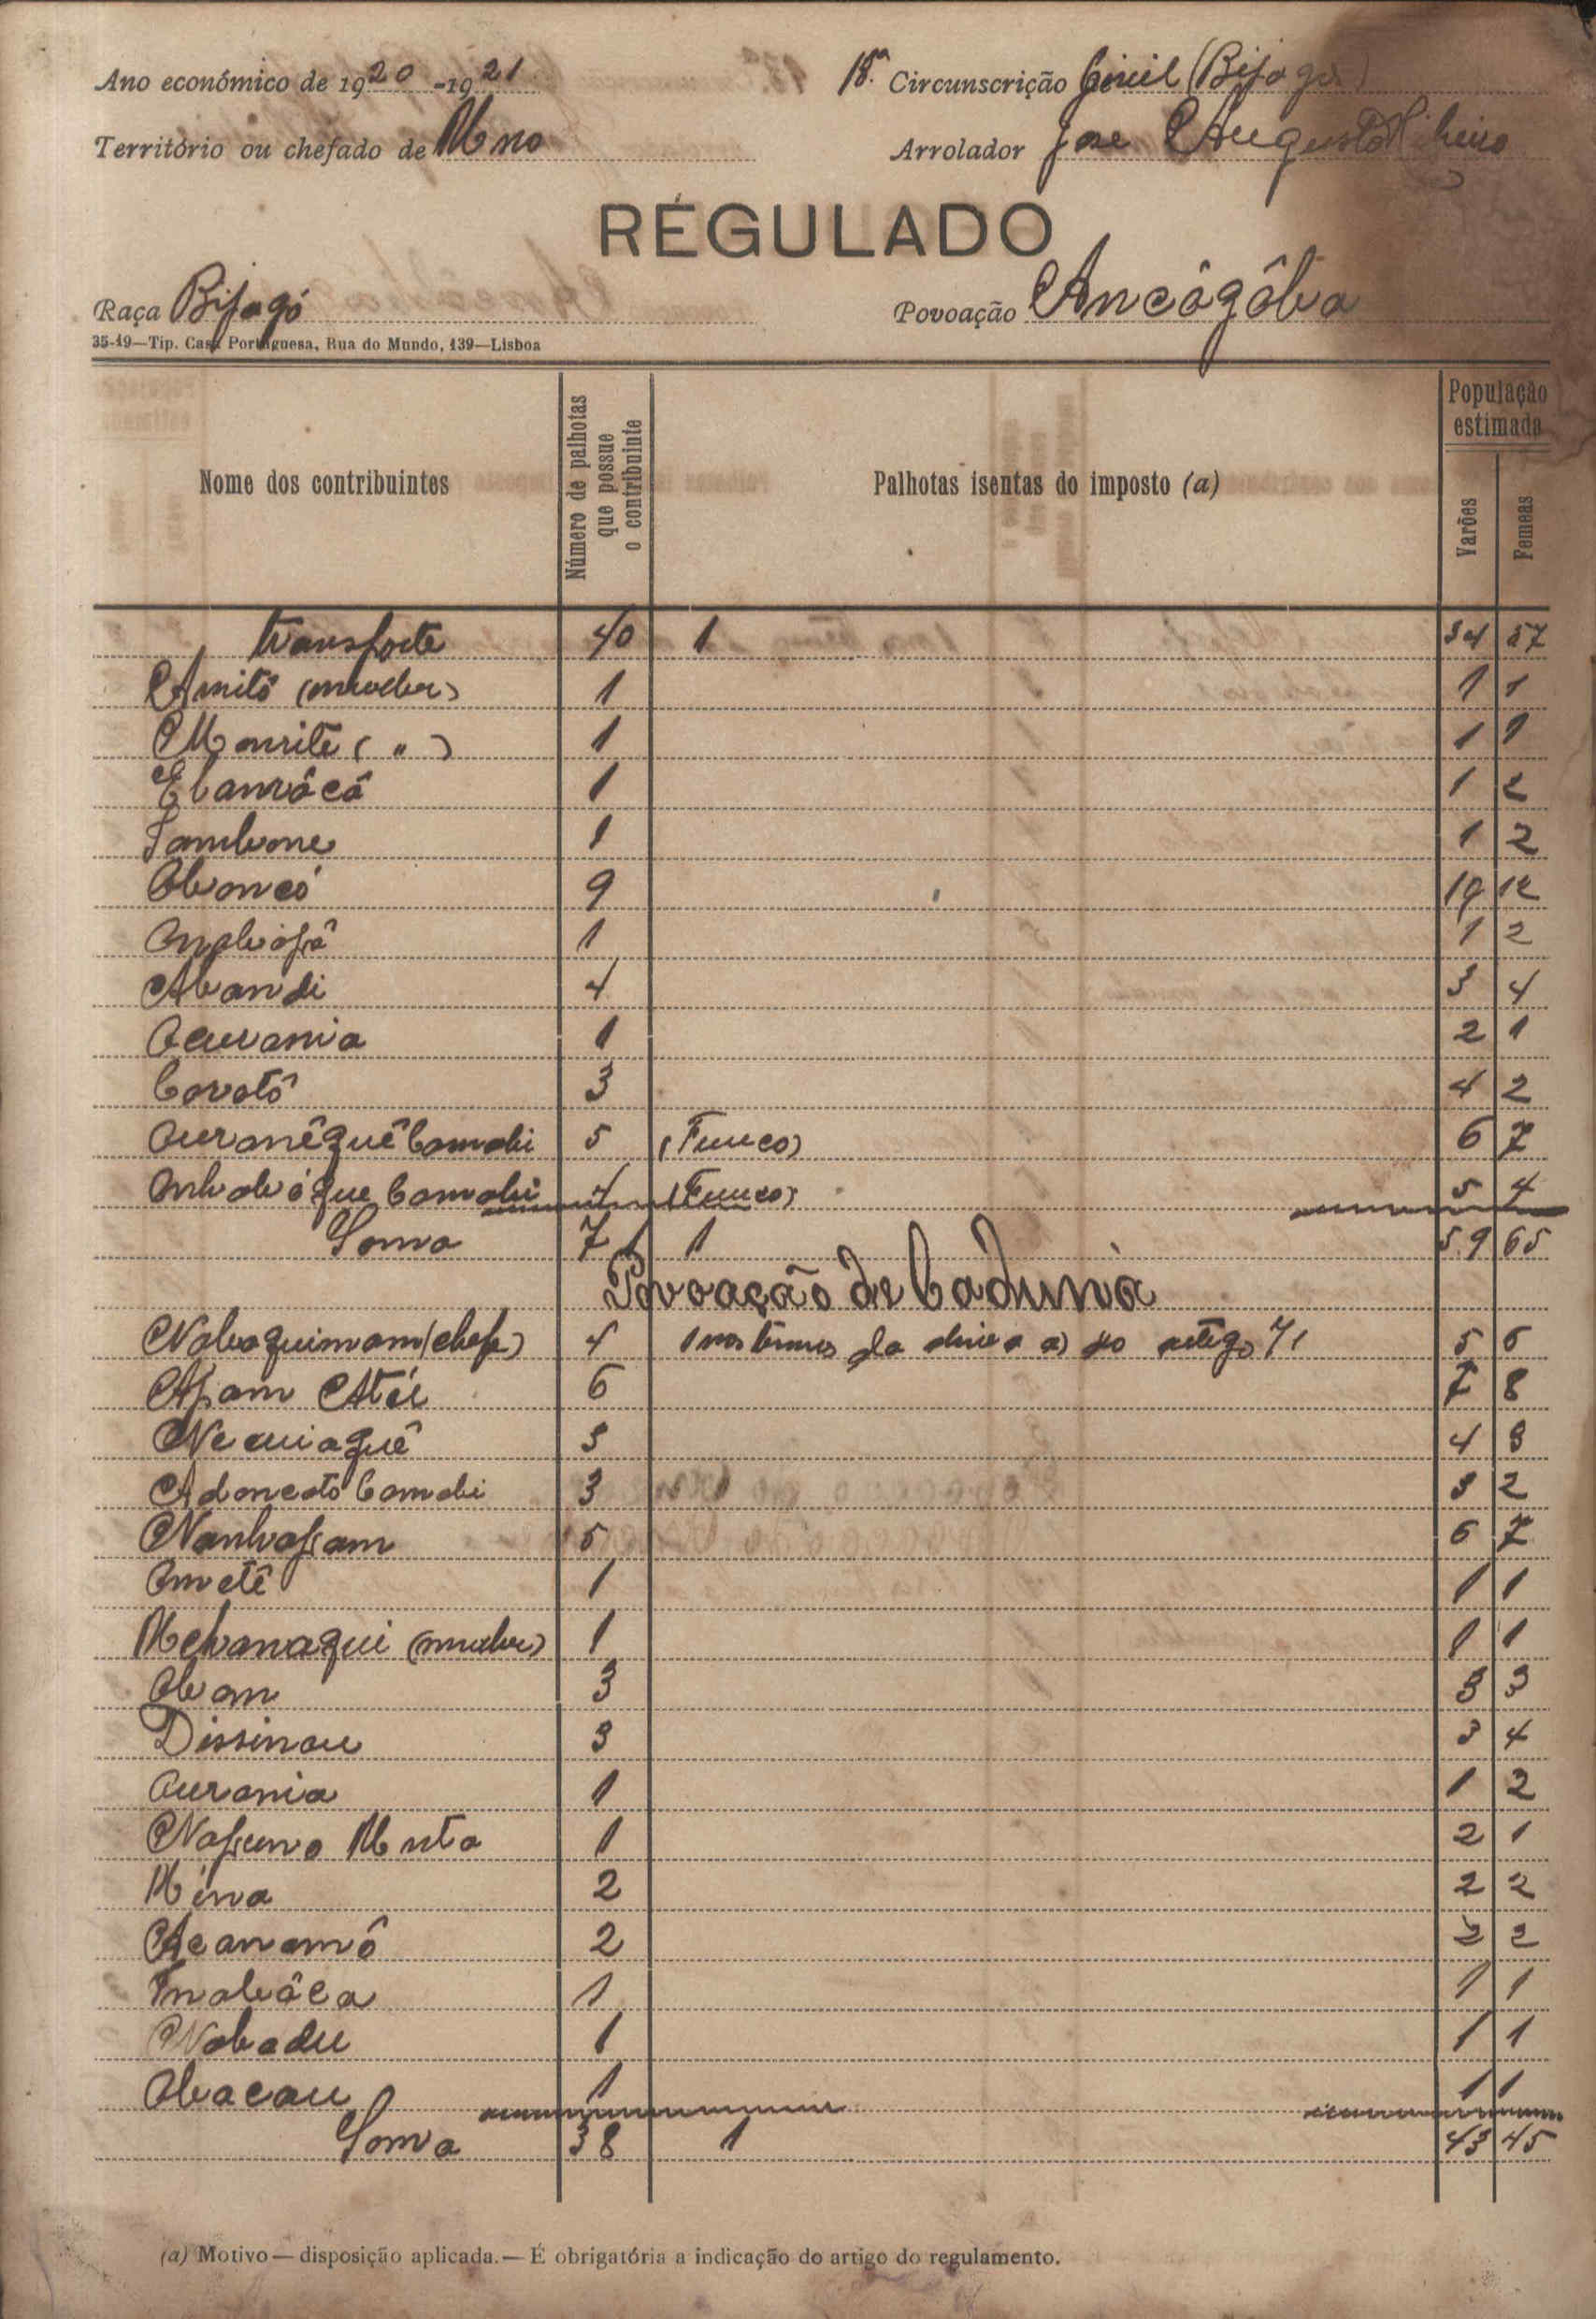 Ano económico de 1920-1921
18.ª Circunscrição Civil (Bijagós)
Território ou chefado de Uno
Arrolador José Augusto Ribeiro
RÉGULADO
Raça Bijagó
Povoação Ancôgôba
35-19—Tip. Casa Portuguesa, Rua do Mundo, 139—Lisboa
Nome dos contribuintes
Número de palhotas que possue o contribuinte
Palhotas isentas do imposto (a)
População estimada
Varões
Femeas
Transporte 40 1 34 57
Amitô (mulher) 1 1 1
Monrite ( " ) 1 1 1
Ebamôcô 1 1 2
Tambone 1 1 2
Oboncó 9 12
1 1 2
Abandi 4 3 4
1 2 1
Corotô 3 4 2
5 (Funco) 6 7
4 (Funco) 5 4
Soma 71 1 59 65
Povoação de Cadunià
Nobaquimam (chefe) 4 1 nos termos da alinea a) do artigo 71 5 6
6 7 8
3 4 3
Adoncoto Camabi 3 3 2
Nanhossam 5 6 7
Ometê 1 1 1
Mehanaqui (mulher) 1 1 1
Obom 3 3 3
Dissinau 3 3 4
Ourania 1 1 2
1 2 1
2 2 2
Acanamô 2 2
Inobôca 1 1 1
Nobadu 1 1 1
Obacau 1 1 1
Soma 38 1 43 45
(a) Motivo — disposição aplicada. — É obrigatória a indicação do artigo do regulamento.